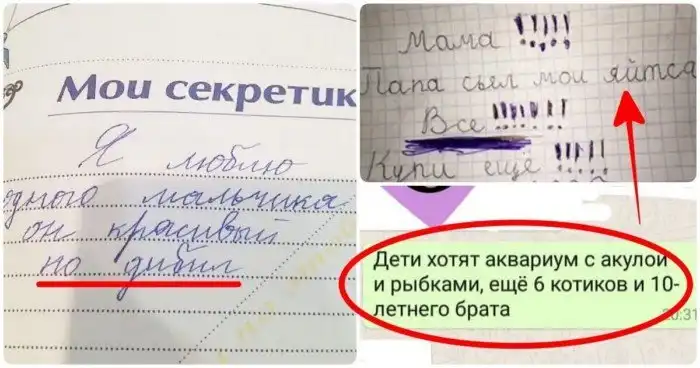 Мои секретик
Я люблю
одного мальчика
он красивый
но дибил
Мама !!!!
Папа сьел мои яйтса
Все !!!!!!
Купи ещё !!!!!
Дети хотят аквариум с акулой
и рыбками, ещё 6 котиков и 10-
летнего брата
20:31